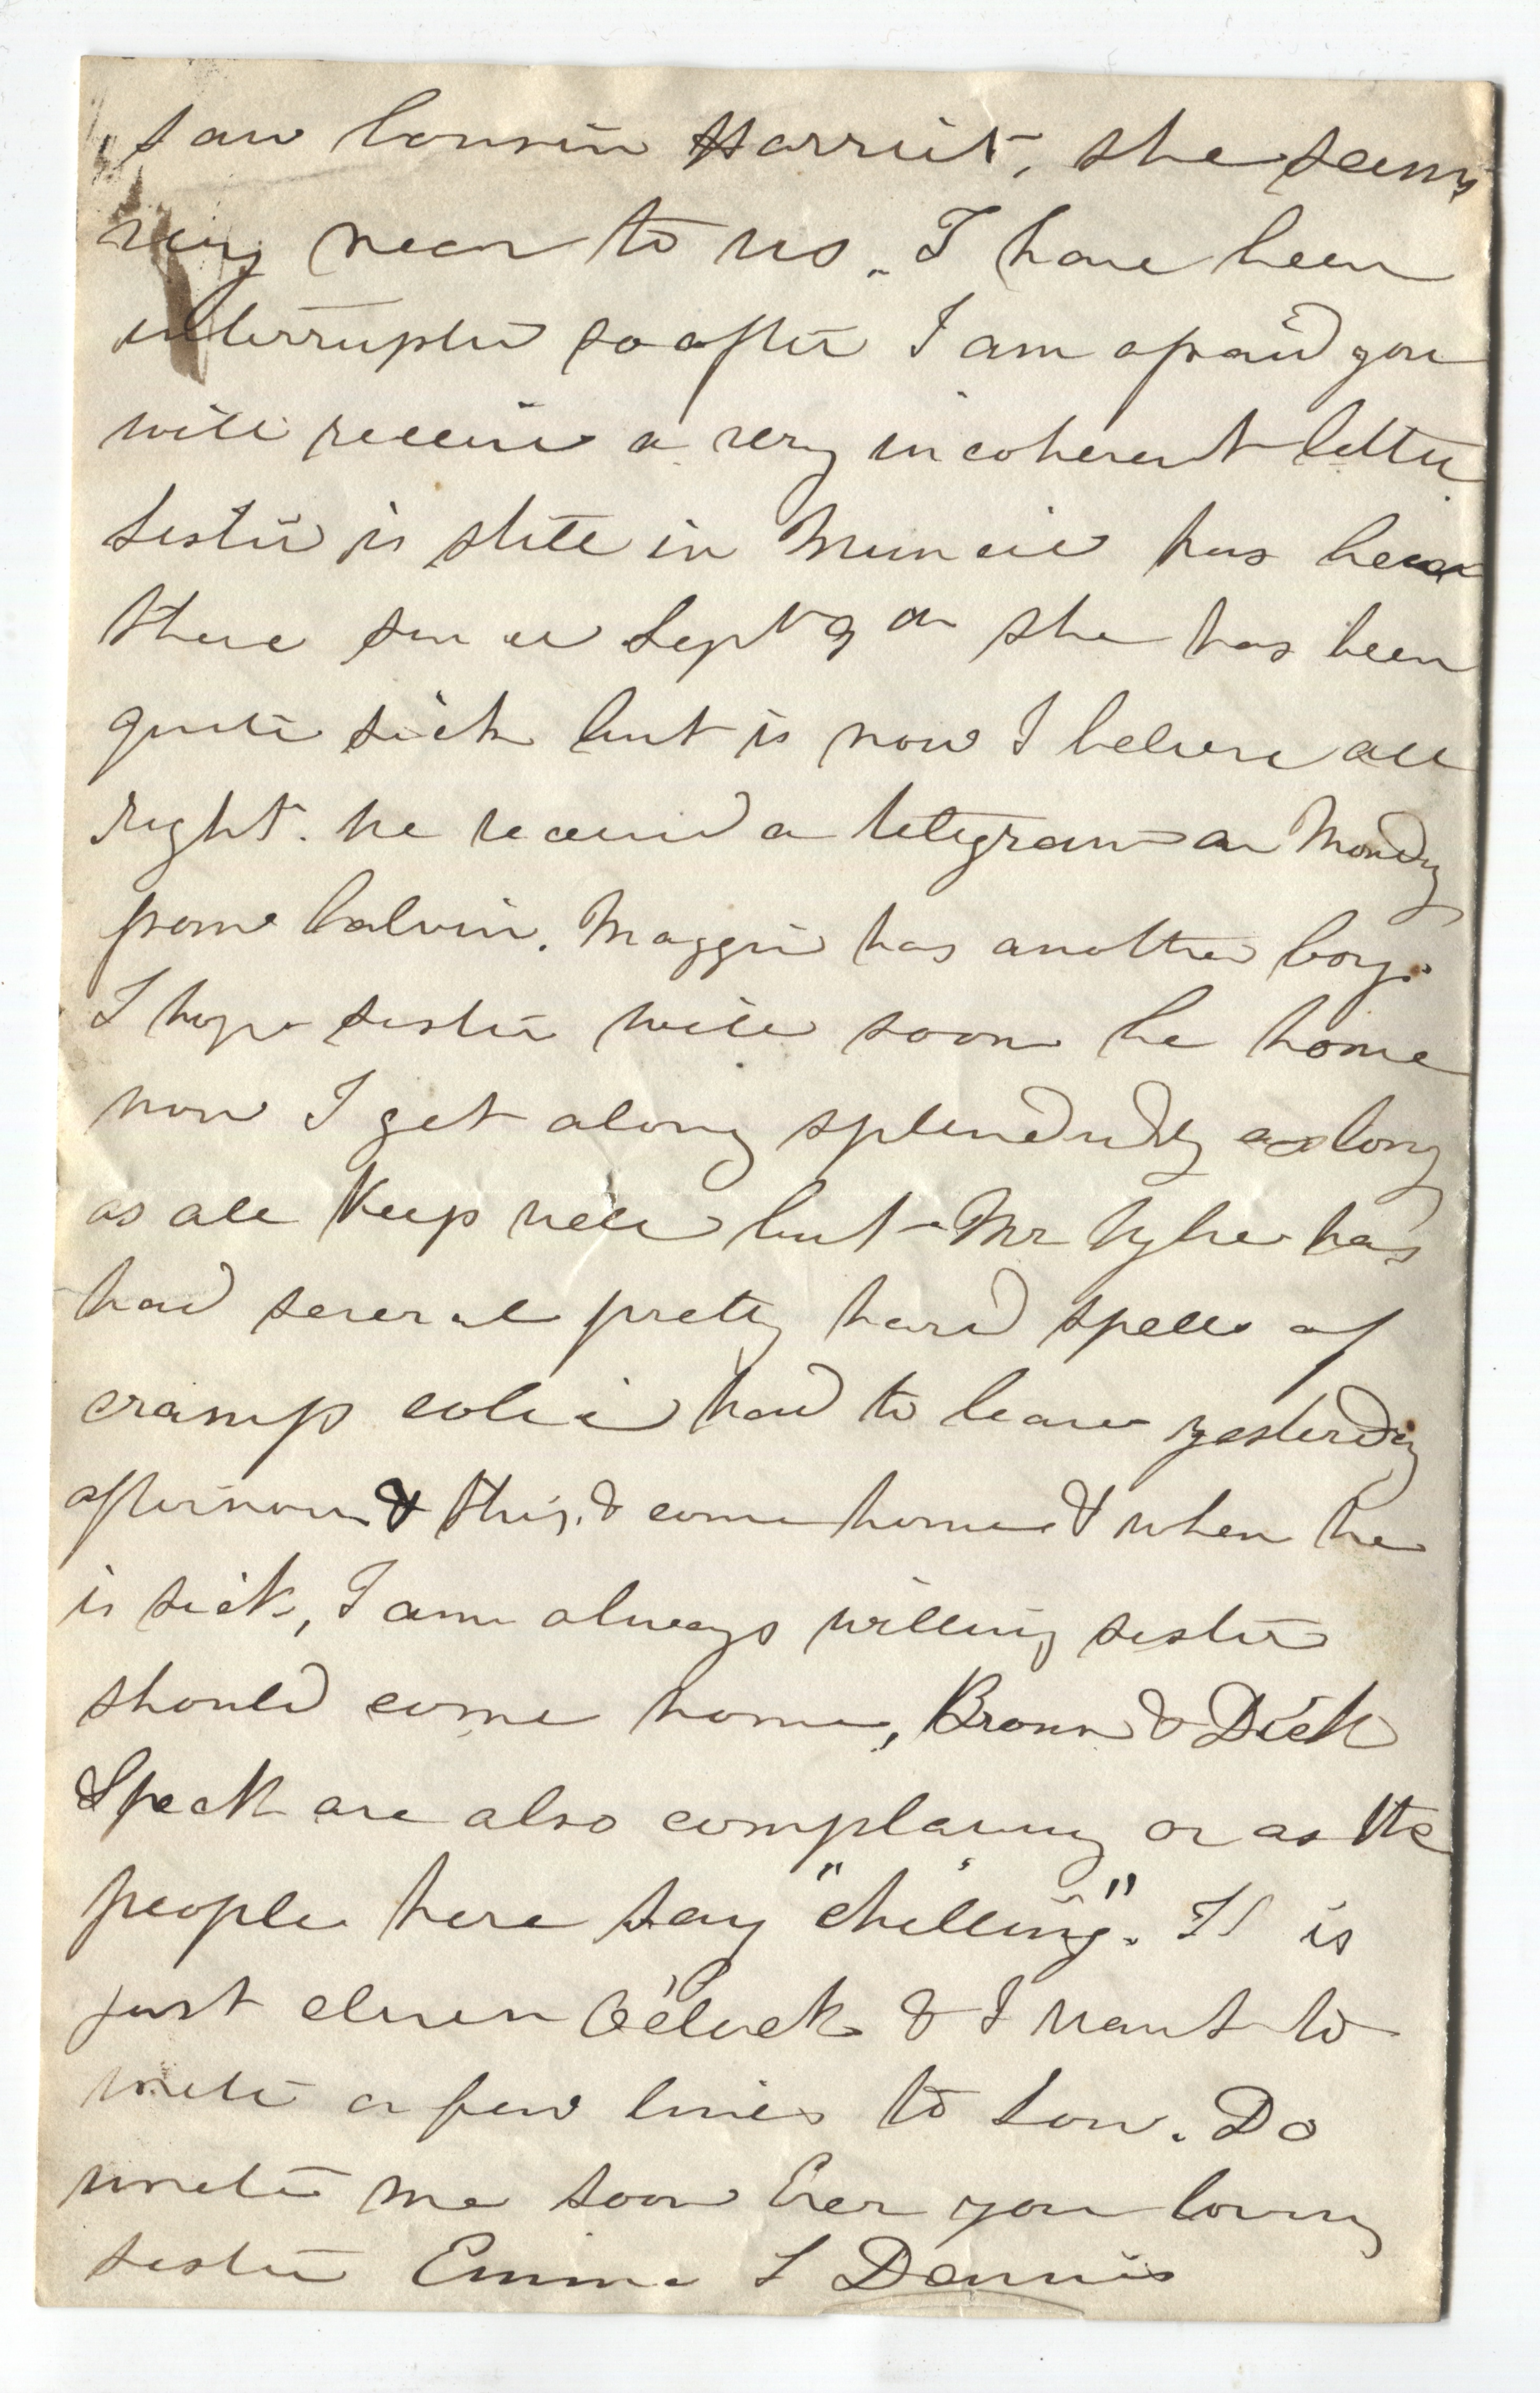 saw Cousin Harriet, she seems
very near to us. I have been
interrupted so often I am afraid you
will receive a very incoherent letter
Sister is still in Muncie has been
there since Sept she has been
quite sick but is now I believe all
right. he received a telegram on Monday
from Calvin. Maggie has another boy.
I hope sister will soon be home
now I get along splendidly as long
as all Keep well but Mr has
had several pretty hard spells of
cramp colic had to leave yesterday
afternoon & this, & come home & when he
is sick, I am always willing sister
should come home, Brown & Dick
Speck are also complaining or as the
people here say "chilling". It is
just eleven O'clock & I want to
write a few lines to Lou. Do
write me soon Ever your loving
sister Emma L Dennis